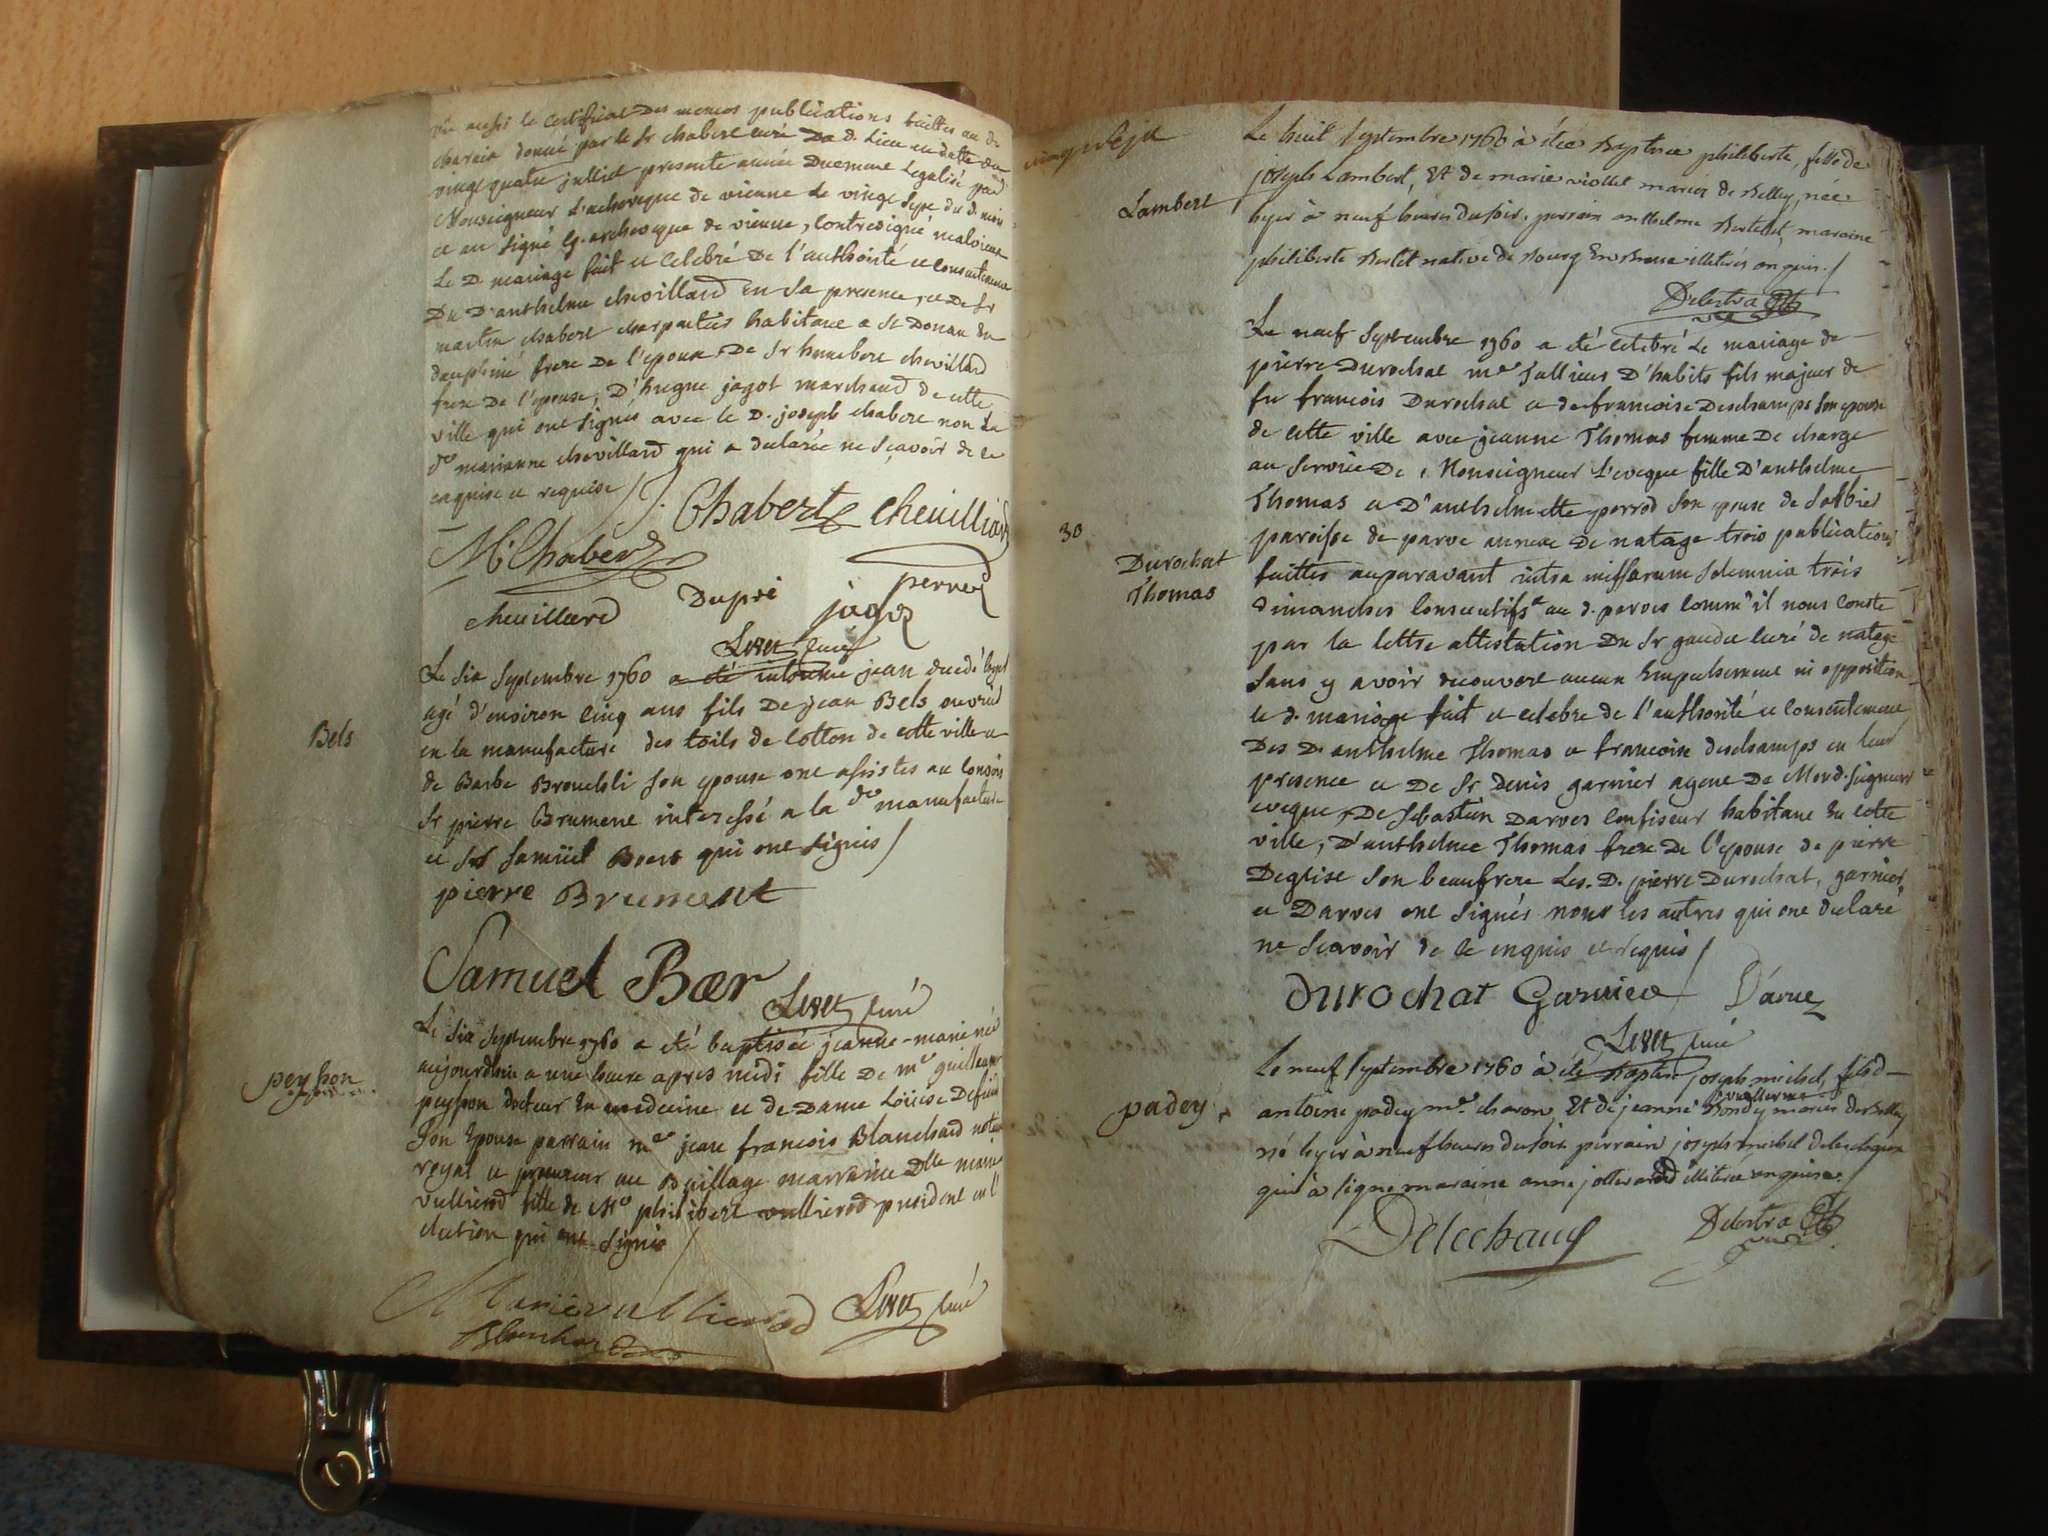 vu aussi le certificat des memes publications faittes au d.
charaix donné par le Sr chabert curé du d. Lieu en datte du
vingt quatre juillet presente année Duement Legalisé par
Monseigneur L'acheveque de vienne Le vingt sept du d. mois
et an signé archeveque de vienne, contresigné
Le D. mariage fait et celebré De l'authorité et consentement
Du D'anthelme chevillard en sa presence, et De Sr
martin chabert charpentier habitant a St Donau en
dauphiné frere De l'epoux, De Sr humbert chevillard
frere De l'epouse, D'hugue jagot marchand de cette
ville qui ont signés avec le D. joseph chabert non la
de marianne chevillard qui a declarée ne sçavoir de ce
enquise et requise /.
J. Chabert chevilliard
M. Chabert
perrod
Dupré
jagot
chevillard
Livet curé
Le six Septembre 1760 a eté inhumé jean
agé d'environ cinq ans fils De jean Bels ouvrier
en la manufacture des toils de Cotton de cette ville et
de Barbe Brouchli son epouse ont assistes au convois
Sr pierre Brument interessé a la de manufacture
et Sr Samüel Boers qui ont signés /
Bels
pierre Brument
Samuel Bœr
Livet curé
Le Six Septembre 1760 a eté baptiseé jeanne-marie née
aujourdhui a une heure apres midi fille De me guillaume
peysson docteur en medecine et de Dame Loüise
son Epouse parrain me jean francois Blanchard notaire
royal et procureur au Baillage marraine Dlle marie
vullierod fille de Me philibert vullierod president en l'
election qui ont signés /
peysson
Marie vullierod
Livet curé
Blanchard
Le huit Septembre 1760 à étée Baptisee philiberte, fille de
joseph Lambert, Et de marie viollet mariés de Belley, nee
hyer à neuf heures du soir, parrain anthelme Bertelet, maraine
philiberte Berlet native de Bourg En Bresse illeterés enquis. /
Lambert
Delestra
Le neuf Septembre 1760 a eté celebré Le mariage de
pierre Durochat me tallieur D'habits fils majeur de
fu francois Durochat et de francoise Deschamps son epouse
de cette ville avec jeanne Thomas femme De charge
au service De Monseigneur L'eveque fille D'anthelme
Thomas et D'anthelmette perrod son epouse de Sorbier
paroisse de parve annexe De natage trois publications
faittes auparavant intra missarum solemnia trois
dimanches Consecutifs au d. parves comm'il nous conste
par la lettre attestation Du Sr gaudu curé de natage
sans y avoir decouvert aucun Empechement ni opposition
le d. mariage fait et celebre de l'authorité et consentement
Des D. anthelme Thomas et francoise deschamps en leur
presence et De Sr Denis garnier agent De Mond. Seigneur
eveque, De Sebastien Darves confiseur habitant En cette
ville, D'anthelme Thomas frere De l'epouse de pierre
Deglise son beaufrere Les. D. pierre Durochat, garnier,
et Darves ont signés non les autres qui ont declaré
ne scavoir de ce enquis et requis /
30
Durochat
Thomas
durochat Garnier Darve
Livet curé
Le neuf Septembre 1760 à éte Baptisé joseph michel, fils d
antoine padey me charon Et de jeanne Bondy mariés de Belley
vuillerme
né hyer à neuf heures du soir parrain joseph michel delechaux
qui à signe maraine anne jollivard illiteree enquise. /
padey
Delechaux
Delestra